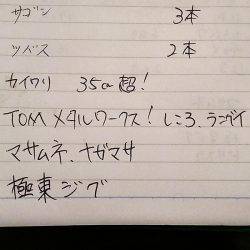 サゴシ 3本
ツバス 2本
カイワリ 35cm超!
TOMメタルワークス! しころ、ランガイ
マサムネ、ナガマサ
極東ジグ